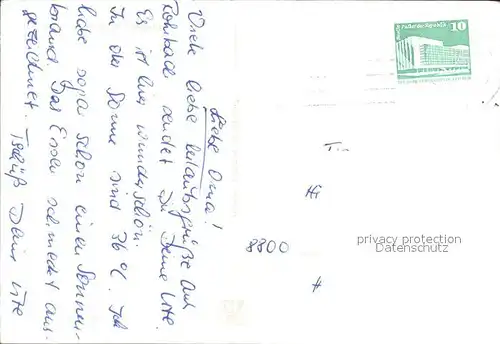 Liebe Oma!
Viele liebe Urlaubsgrüße aus
sendet Dir Deine Ute.
Es ist hier wunderschön.
In der Sonne sind 36 °C. Ich
habe sogar schon einen Sonnen-
brand. Das Essen schmeckt aus-
gezeichnet. Tschüß Deine Ute
10
8800
privacy protection
DATENSCHUTZ